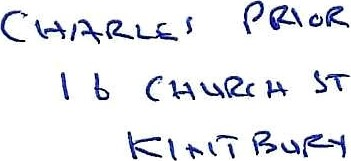 CHARLES PRIOR
16 CHURCH ST
KINTBURY